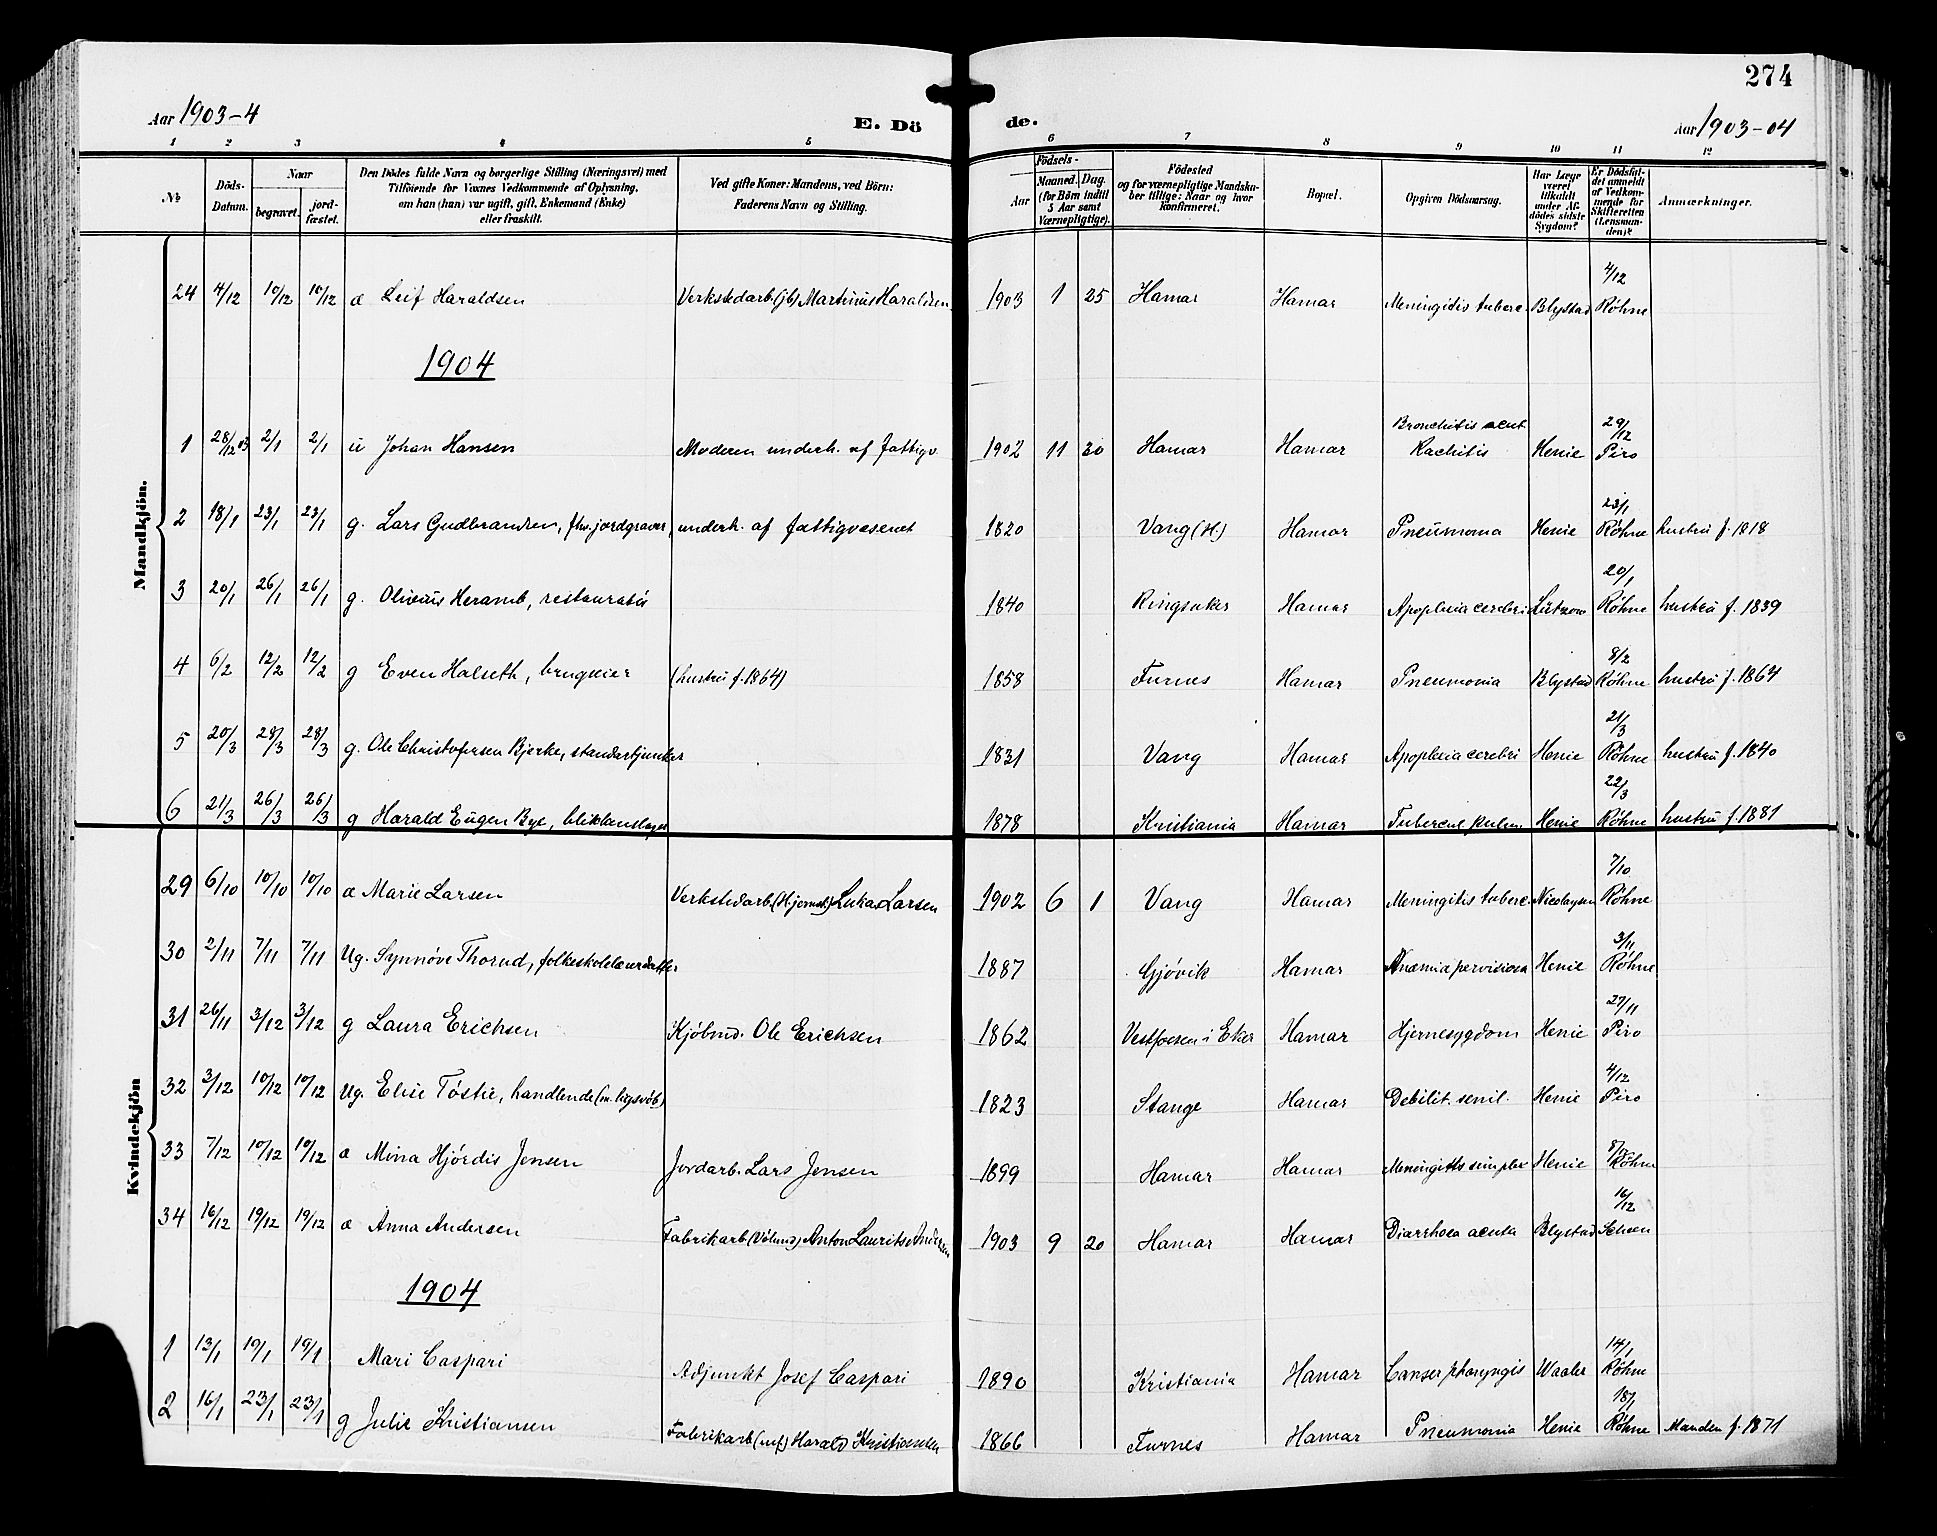 274
Aar 1903-4
E. Dö
de.
Aar 1903-04
1 2 3 4 5 6 7 8 9 10 11 12
№
Döds-Datum.
Naar
begravet.
jord-fæstet.
Den Dödes fulde Navn og borgerlige Stilling (Næringsvei) med
Tilföiende for Vaxnes Vedkommende af Oplysning,
om han (hun) var ugift, gift, Enkemand (Enke)
eller fraskilt.
Ved gifte Koner: Mandens, ved Börn:
Faderens Navn og Stilling.
Födsels-
Aar
Maaned. Dag.
(for Börn indtil
5 Aar samt
Værnepligtige).
Födested
og for værnepligtige Mandsku-
ber tillige: Naar og hvor
konfirmeret.
Bopæl.
Opgiven Dödsaarsag.
Har Læge
været
tilkaldt
under Af-
dödes sidste
Sygdom?
Er Dödsfal-
det anmeldt
af Vedkom-
mende for
Skifteretten
(Lensman-
den)?
Anmærkninger.
Mandkjön.
24 4/12 10/12 10/12 æ Leif Haraldsen Verkstedarb. (jb) Martinius Haraldsen 1903 1 25 Hamar Hamar Meningitis tuberc. Blystad 4/12 Röhne
1904
1 28/12 03 2/1 2/1 u Johan Hansen Moderen underh. af fattigv. 1902 11 30 Hamar Hamar Bronchitis acut. Rachitis Henie 29/12 Piro
2 18/1 23/1 23/1 g. Lars Gudbrandsen, fhv. jordgraver, underh. af fattigvæsenet 1820 Vang (H.) Hamar Pneumonia Henie 23/1 Röhne hustru f. 1818
3 20/1 26/1 26/1 g. Olivius Heramb, restauratör 1840 Ringsaker Hamar Apoplexia cerebri Lützow 20/1 Röhne hustru f. 1839
4 6/2 12/2 12/2 g Even Halseth, brugseier (hustru f. 1864) 1858 Furnes Hamar Pneumonia Blystad 8/2 Röhne hustru f. 1864
5 20/3 28/3 28/3 g. Ole Christofersen Bjerke, standartjunker 1831 Vang Hamar Apoplexia cerebri Henie 21/3 Röhne hustru f. 1840
6 21/3 26/3 26/3 g Harald Eugen Bye, blikkenslager 1878 Kristiania Hamar Tubercul. pulm. Henie 22/3 Röhne hustru f. 1881
Kvindekjön
29 6/10 10/10 10/10 æ Marie Larsen Verkstedarb. (Hjemst.) Lukas Larsen 1902 6 1 Vang Hamar Meningitis tuberc. Nicolaysen 7/10 Röhne
30 2/11 7/11 7/11 Ug. Synnöve Thorud, folkeskolelærerdatter 1887 Gjövik Hamar Anæmia perniciosa Henie 3/11 Röhne
31 26/11 3/12 3/12 g Laura Erichsen Kjöbmd. Ole Erichsen 1862 Vestfossen i Eker Hamar Hjernesygdom Henie 27/11 Piro
32 3/12 10/12 10/12 Ug. Elise Töstie, handlende 1823 Stange Hamar Debilit. senil. Henie 4/12 Piro
33 7/12 10/12 10/12 æ Mina Hjördis Jensen Jordarb. Lars Jensen 1899 Hamar Hamar Meningitis simplex Henie 8/12 Röhne
34 16/12 19/12 19/12 æ Anna Andersen Fabrikarb (Völund) Anton Lauritz Andersen 1903 9 20 Hamar Hamar Diarrhoea acuta Blystad 16/12
1904
1 13/1 19/1 19/1 Mari Caspari Adjunkt Josef Caspari 1890 Kristiania Hamar Canser pharyngis Waaler 14/1 Röhne
2 16/1 23/1 23/1 g Julie Kristiansen Fabrikarb. Harald Kristiansen 1866 Furnes Hamar Pneumonia Henie 18/1 Röhne Manden f. 1871